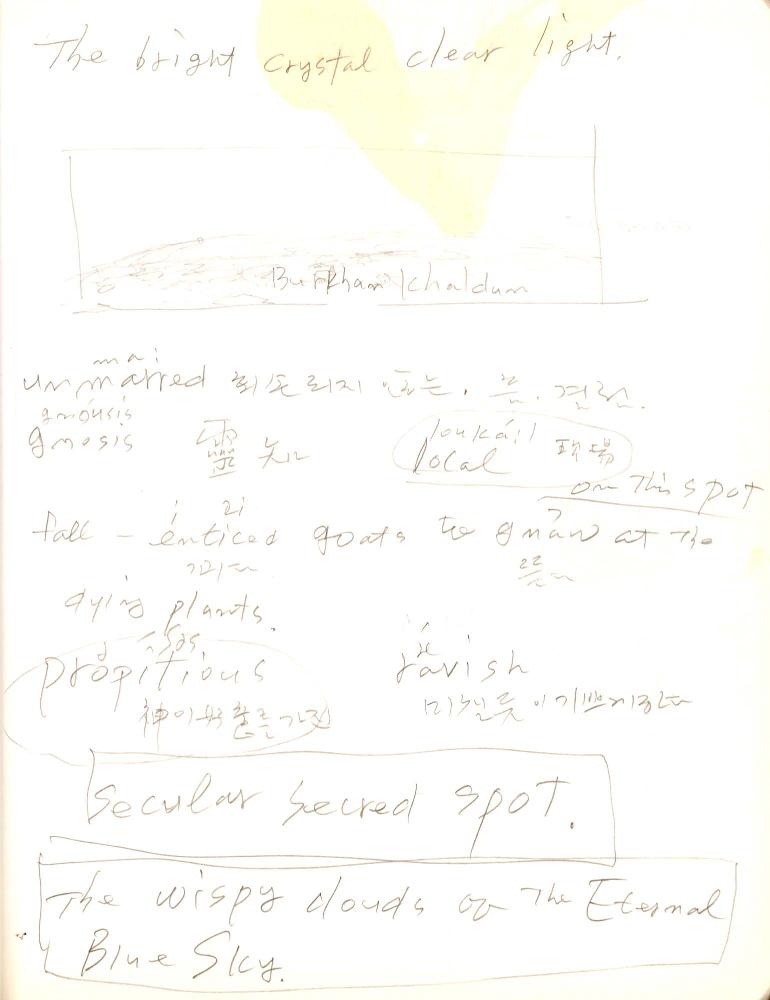 The bright crystal clear light.
Burkhan Khaldun
mai
unmarred 회손되지 않는. 른.
gnousis
gnosis 靈 知
loukáil
local 現場
on This spot
i zi
fall - enticed goats to gnaw at The
꾀다
뜯다
dying plants.
propitious
ravish
미칠듯이 기쁘게하다
Secular Secred spot.
The wispy clouds of The Eternal
Blue Sky.